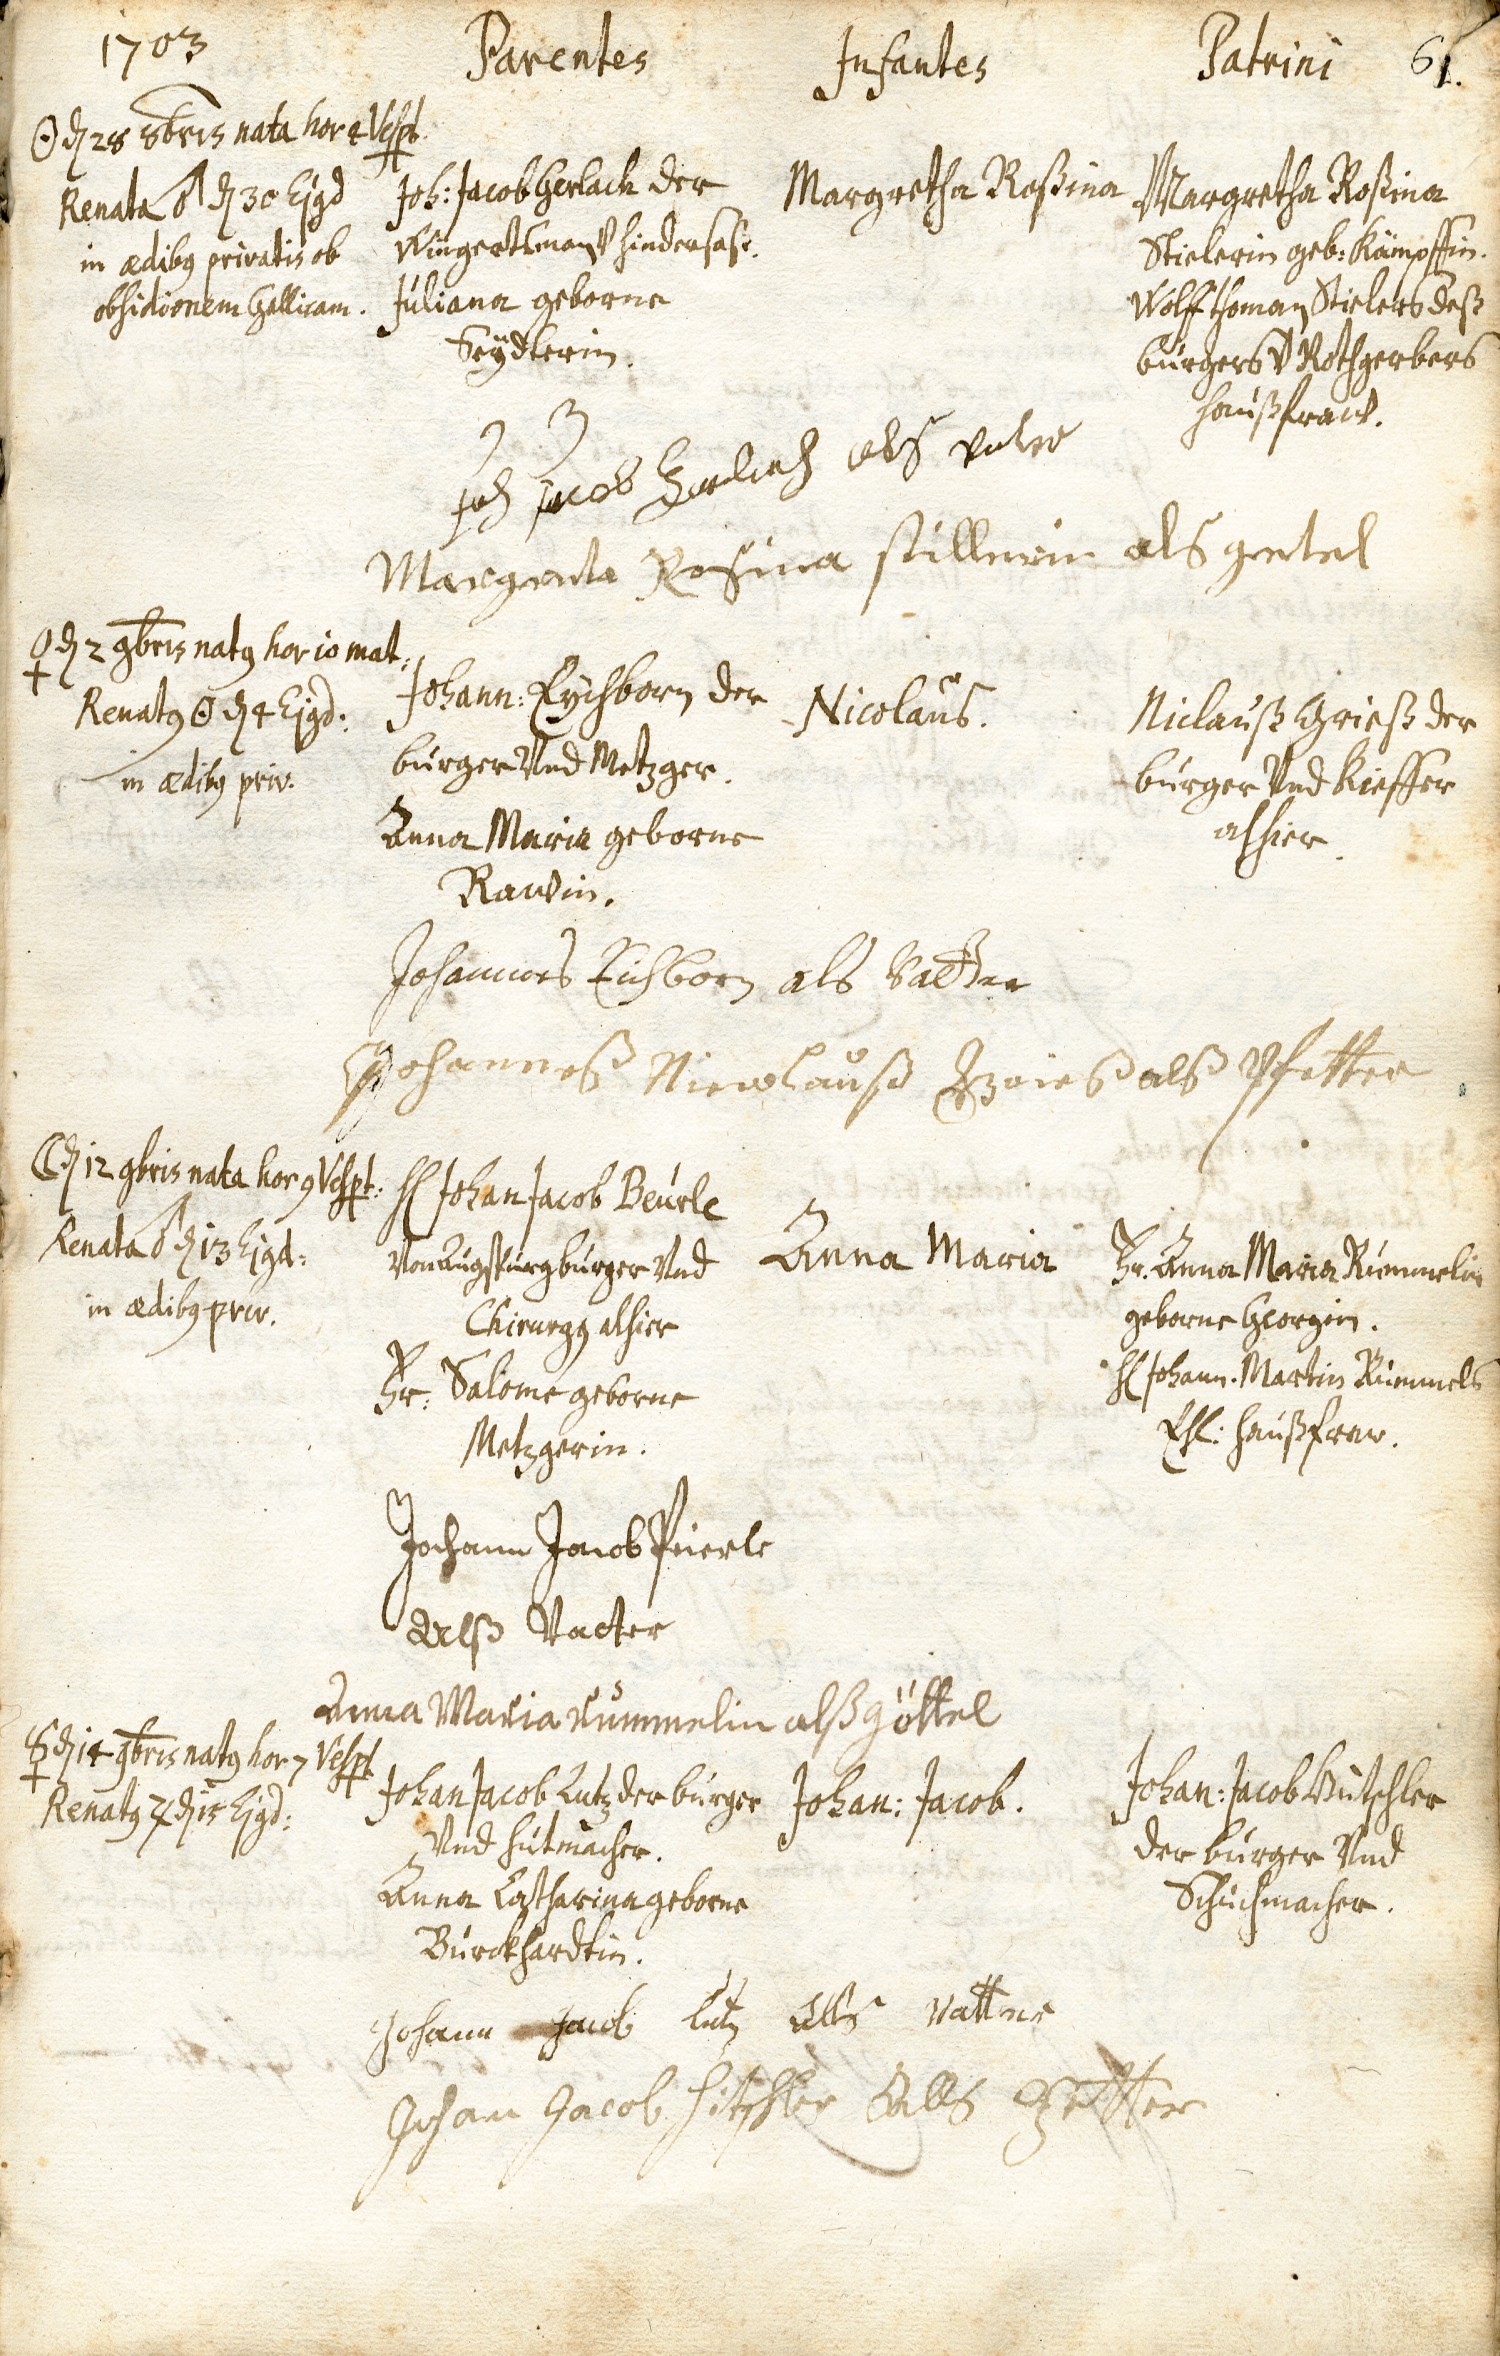 1703 Parentes Infantes Patrini 61.
☉ d 28 8bris nata hor 4 Vesp:
Renata ♂ d 30 Ejgd
in ædibg privatis ob
obsidionem Gallicam.
Joh: Jacob Gerlach der
Wingertsman V hindersaß.
Juliana geborne
Seÿdlerin.
Margretha Roßina
Margretha Roßina
Stielerin geb: Kämpffin.
Wolff thoman Stielers deß
burgers V Rothgerbers
haußfraw.
Joh Jacob Gerlach als vater
Margreta Rosina stillerin als gettel
♀ d 2 9bris natg hor 10 mat:
Renatg ☉ d 4 Ejgd:
in ædibg priv.
Johann: Eychborn der
burger Vnd Metzger.
Anna Maria geborne
Rawin.
Nicolaus.
Niclauß Grieß der
burger Vnd Kieffer
alhier.
Johannes Eichborn als Vatter
Johanneß Nicolauß Grieß alß Pfetter
☾ d 12 9bris nata hor 9 Vespt:
Renata ♂ d 13 Ejgd:
in ædibg priv.
H Johan Jacob Beurle
Von Augspurg burger Vnd
Chirurgg alhier
Fr: Salome geborne
Metzgerin.
Anna Maria
Fr. Anna Maria Rümmelin
geborne Georgin.
H Johann. Martin Rümmels
Ehl: haußfraw.
Johann Jacob Peierle
Alß Vatter
Anna Maria rummelin alß göttel
☿ d 14 9bris natg hor 7 Vespt
Renatg ♃ d 15 Ejgd:
Johan Jacob Lutz der burger
Vnd hutmacher.
Anna Catharina geborne
Burckhardtin.
Johan: Jacob.
Johan: Jacob Hütschler
der burger Vnd
Schuhmacher.
Johann Jacob Lutz Alls Vatter
Johan Jacob hitschler Alls Petter